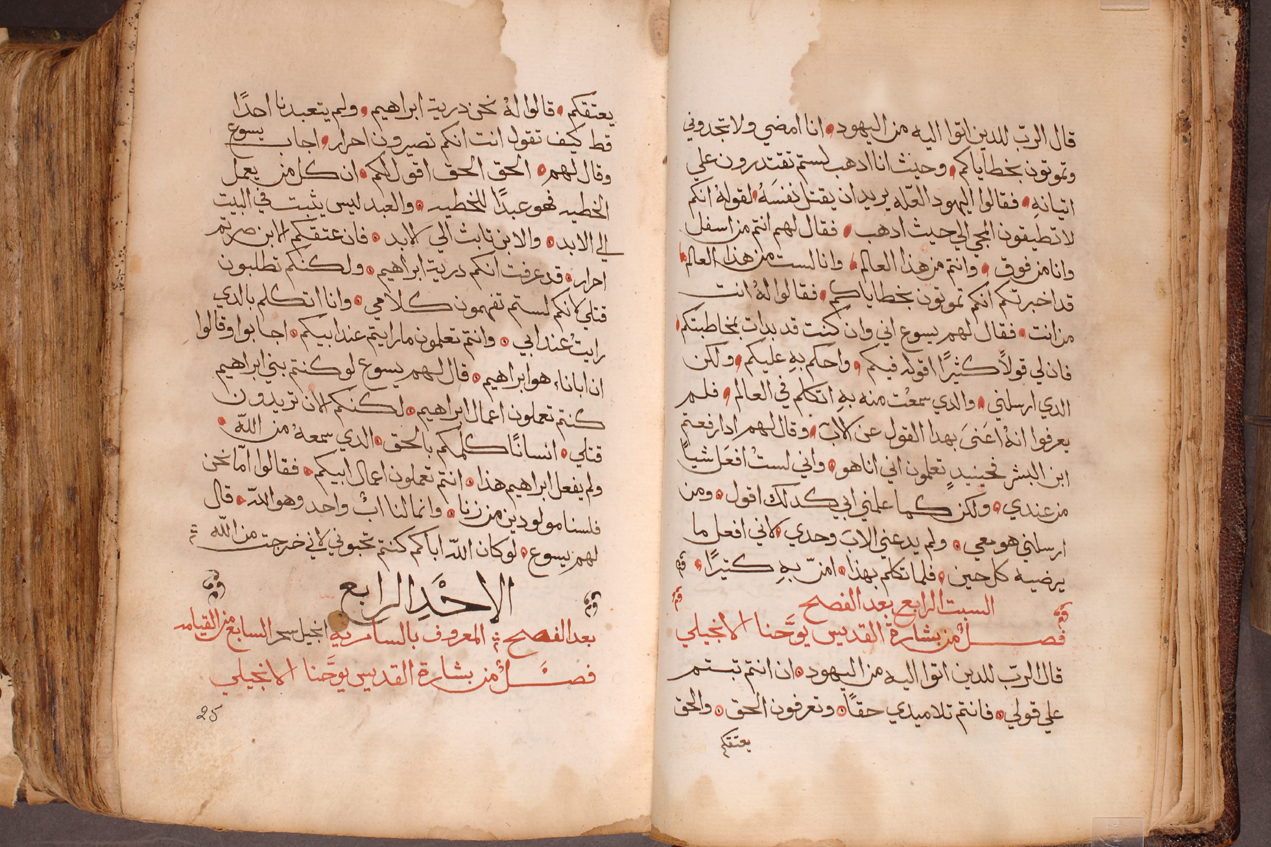 قال الربّ للدين اتوا اليه من اليهود انا امضي ولا تجدوني
وتموتون بخطاياكم وحيث انا ادهب لستم تقتدرون علي
اتيانه فقالوا اليهود العلّه يريد ان يقتل نفسَهُ لقوله انكم
لا تطيقون المجي الي حيث ادهب فقال لهم انتم من اسفل
وانا من فوق وانتم من هذا العالم وانا لست من هذا العالم
قد اخبرتكم انكم تموتون بخطاياكم فقالوا لهُ انت
من انت فقال لهم يسوع اني وان كنت قد بدات بمخاطبتكم
فان لي قولاً كثيرًا اقوله فيكم واحكم بهِ عليكم ولكن
الدي ارسلني والدي سمعت منه بهِ اتكلم في العالم فلم
يعرفوا انهُ اعَنيَ بهدا القول عن الاب وقال لهم ادا رفعتم
ابن البشر فحينيدٍ تعلمون اني انا هو واني لستُ افعَل شياً
من عندي ولكن كما علمني ابي كدلك اقول ومن
ارسلني هو معي ولم يدعني الاب وحدي لاني افعل ما
يرضيه كل حين فلما تكلم بهذا امن بهِ كثيرًا
السبت الرابع بعد الفصح
فصل من بشارة القديس يوحَنا الانجيلي
قال الربّ للدين اتوا اليه من اليهود ان انتم تبتم
علي قولي فانتم تلاميدي حقاً وتعرفون الحق والحق
يعتقكم
يعتقكم قالوا لهُ نحن درية ابراهيم ولم يتعبدنا احدًا
قط كيف تقول انت انكم تصيرون احرار اجاب يسوع
وقال لهم الحق الحق اقول لكم ان كل من يعمل
الخطيه فهو عبدًا للخطيه والعبد ليس يثبت في البيت
الي الابد والابن ثابت الي الابد فان عتقكم الابن صرتم
احرار قد عرفت انكم درية ابراهيم ولكنكم تطلبون
قتلي لانكم لستم تفهمون كلامي وانا اتكلم بالدي
رايت عند ابي وانتم تعلمون ما رايتم عند ابيكم اجابوا وقالوا
ان ابانا هو ابراهيم قال لهم يسوع لو كنتم بني ابراهيم
كنتم تعملون اعمال ابراهيم لكنكم الان تريدون
قتلي انسانًا كلمكم بالحق الدي سمعهُ من اللّه
ولم يفعل ابراهيم هذا انتم تعملون اعمال ابيكم فقالوا امّا نحن
فلسنا مولودين من زنا وانما لنا ابٌ واحد وهو اللّه قال
لهم يسوع لو كان اللّه اباكم كنتم تحبوني لاني خرجت من اللّه
الاحَد الرابع
بعد الفصح المعروف بالسامرية انجيل سحر السابع من القيامه
فصَل من بشارة القديس يوحَنا الانجيلي
25